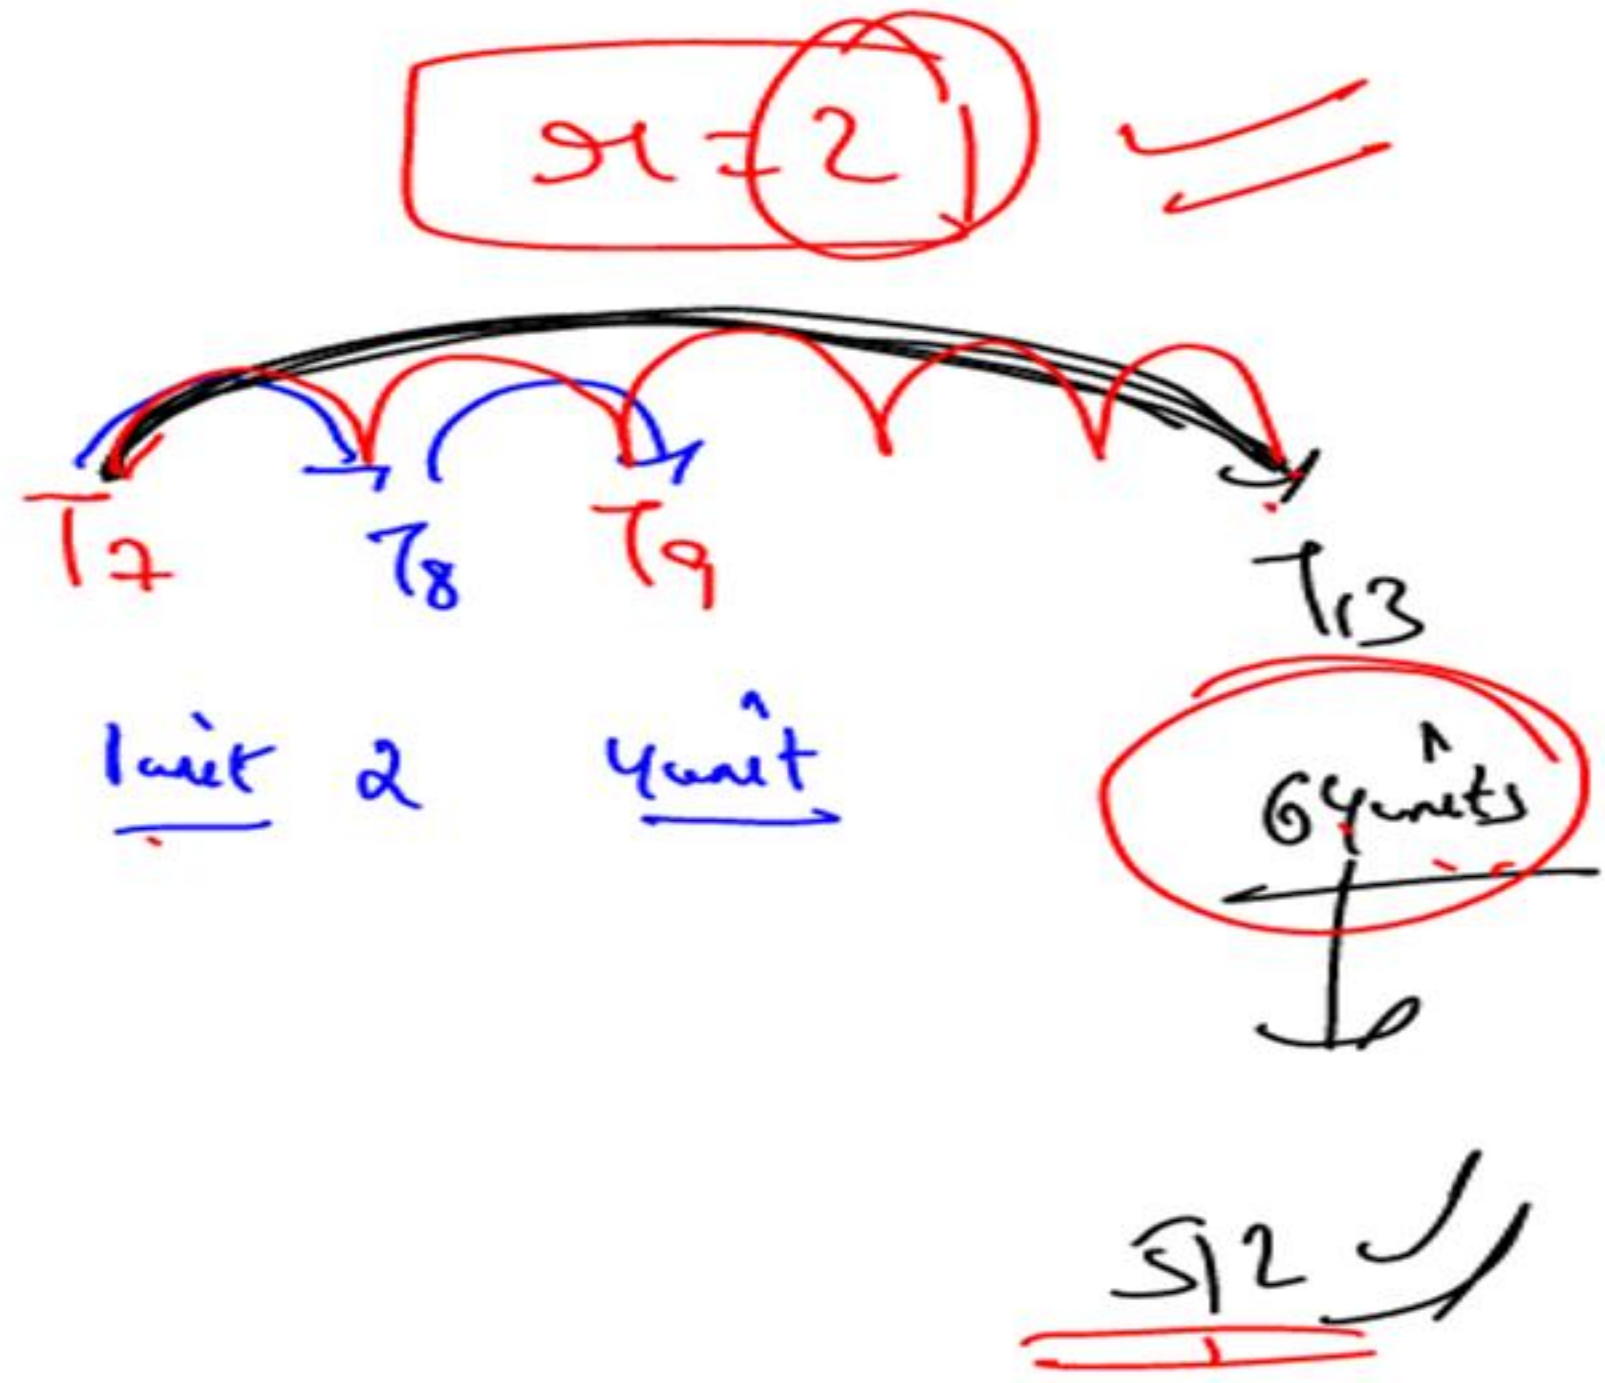 r = 2
T7 T8 T9
T13
1 unit 2 4 unit
64 units
512